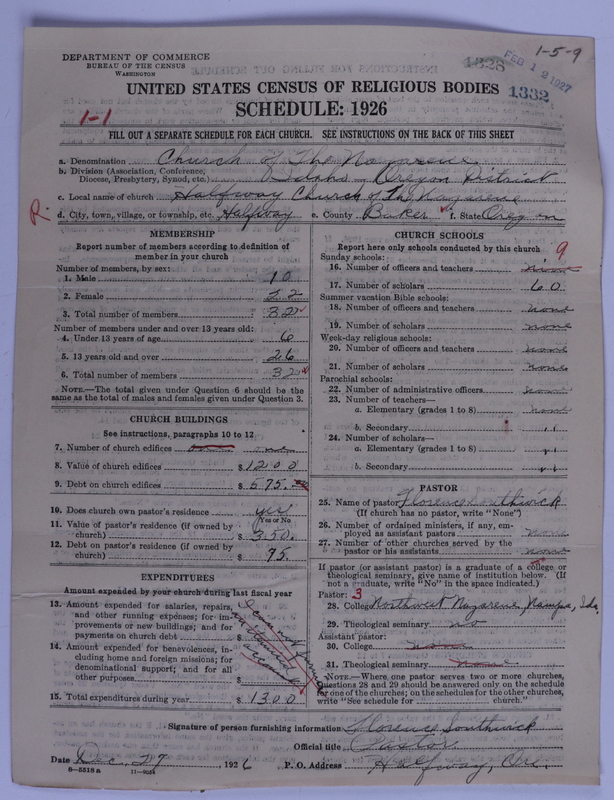 DEPARTMENT OF COMMERCE
BUREAU OF THE CENSUS
WASHINGTON
1-5-9
1328
FEB 19 1927
1332
UNITED STATES CENSUS OF RELIGIOUS BODIES
SCHEDULE: 1926
1-1
FILL OUT A SEPARATE SCHEDULE FOR EACH CHURCH. SEE INSTRUCTIONS ON THE BACK OF THIS SHEET
a. Denomination Church of The Nazarene
b. Division (Association, Conference, Diocese, Presbytery, Synod, etc.) Idaho Oregon District
c. Local name of church Halfway Church of The Nazarene
R. d. City, town, village, or township, etc. Halfway e. County Baker f. State Oregon
MEMBERSHIP
Report number of members according to definition of
member in your church
Number of members, by sex:
1. Male 10
2. Female 22
3. Total number of members 32
Number of members under and over 13 years old:
4. Under 13 years of age 6
5. 13 years old and over 26
6. Total number of members 32
NOTE.—The total given under Question 6 should be
same as the total of males and females given under Question 3.
CHURCH BUILDINGS
See instructions, paragraphs 10 to 12
7. Number of church edifices one
8. Value of church edifices $ 1200
9. Debt on church edifices $ 575.
10. Does church own pastor's residence yes
(Yes or No)
11. Value of pastor's residence (if owned by
church) $ 350.
12. Debt on pastor's residence (if owned by
church) $ 75.
EXPENDITURES
Amount expended by your church during last fiscal year
13. Amount expended for salaries, repairs,
and other running expenses; for im-
provements or new buildings; and for
payments on church debt $
14. Amount expended for benevolences, in-
cluding home and foreign missions; for
denominational support; and for all
other purposes $
15. Total expenditures during year $ 1300
CHURCH SCHOOLS
Report here only schools conducted by this church 9
Sunday schools:
16. Number of officers and teachers nine
17. Number of scholars 60
Summer vacation Bible schools:
18. Number of officers and teachers none
19. Number of scholars none
Week-day religious schools:
20. Number of officers and teachers none
21. Number of scholars none
Parochial schools:
22. Number of administrative officers none
23. Number of teachers—
a. Elementary (grades 1 to 8) none
b. Secondary " "
24. Number of scholars—
a. Elementary (grades 1 to 8) " "
b. Secondary " "
PASTOR
25. Name of pastor Florence Southwick
(If church has no pastor, write "None")
26. Number of ordained ministers, if any, em-
ployed as assistant pastors none
27. Number of other churches served by the
pastor or his assistants none
If pastor (or assistant pastor) is a graduate of a college or
theological seminary, give name of institution below. (If
not a graduate, write "No" in the space indicated.)
Pastor: 3
28. College Northwest Nazarene, Nampa, Ida.
29. Theological seminary no
Assistant pastor:
30. College none
31. Theological seminary none
NOTE.—Where one pastor serves two or more churches,
Questions 28 and 29 should be answered only on the schedule
for one of the churches; on the schedules for the other churches,
write "See schedule for church."
Signature of person furnishing information Florence Southwick
Official title Pastor.
Date Dec. 27, 1926 P. O. Address Halfway, Ore.
8—5518 a 11—9054